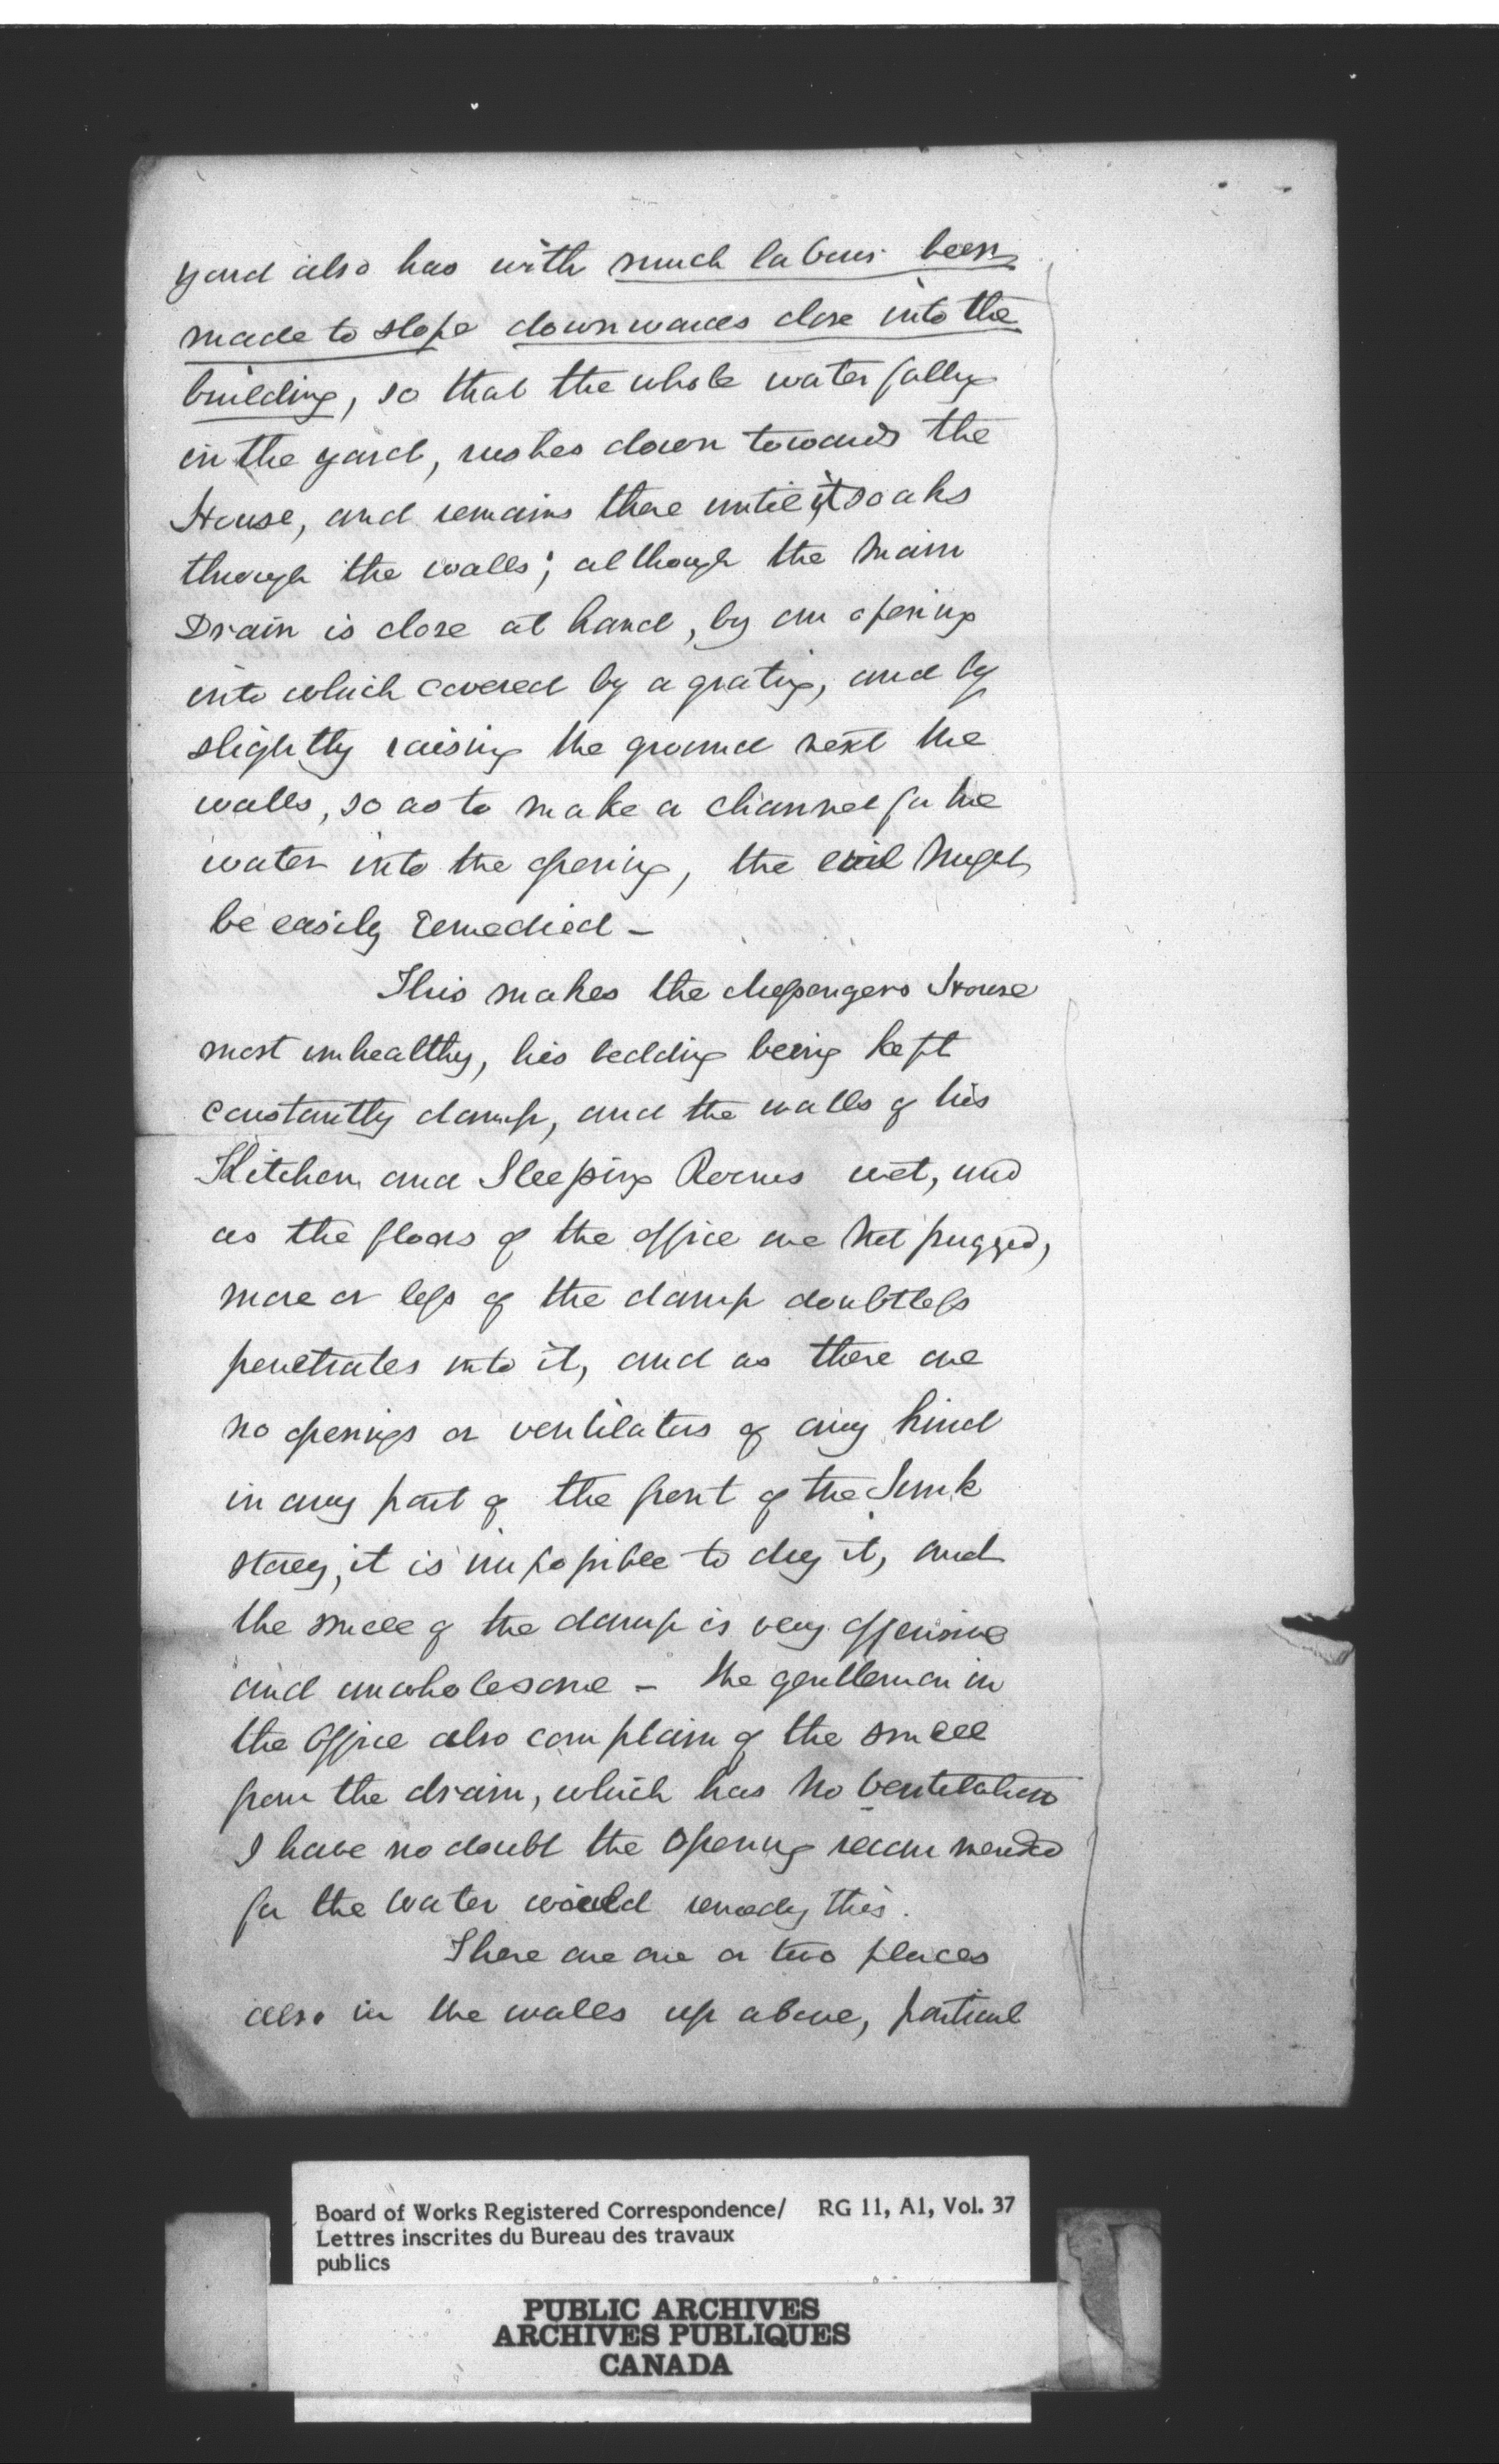 yard also has with much labour been
made to slope downwards close into the
building, so that the whole water falling
in the yard, rushes down towards the
House, and remains there until it soaks
through the walls; although the main
Drain is close at hand, by an opening
into which covered by a grating, and by
slightly raising the ground next the
walls, so as to make a channel for the
water into the opening, the evil might
be easily remedied -
This makes the Messengers House
most unhealthy, his bedding being kept
constantly damp, and the walls of his
Kitchen and Sleeping Rooms wet, and
as the floors of the office are not pugged,
more or less of the damp doubtless
penetrates into it, and as there are
no openings or ventilators of any kind
in any part of the front of the Sunk
story, it is impossible to dry it, and
the smell of the damp is very offensive
and unwholesome - the gentlemen in
the Office also complain of the smell
from the drain, which has no ventilation
I have no doubt the opening recommended
for the water would remedy this.
There are one or two places
also in the walls up above, particul
Board of Works Registered Correspondence/ RG 11, A1, Vol. 37
Lettres inscrites du Bureau des travaux
publics
PUBLIC ARCHIVES
ARCHIVES PUBLIQUES
CANADA